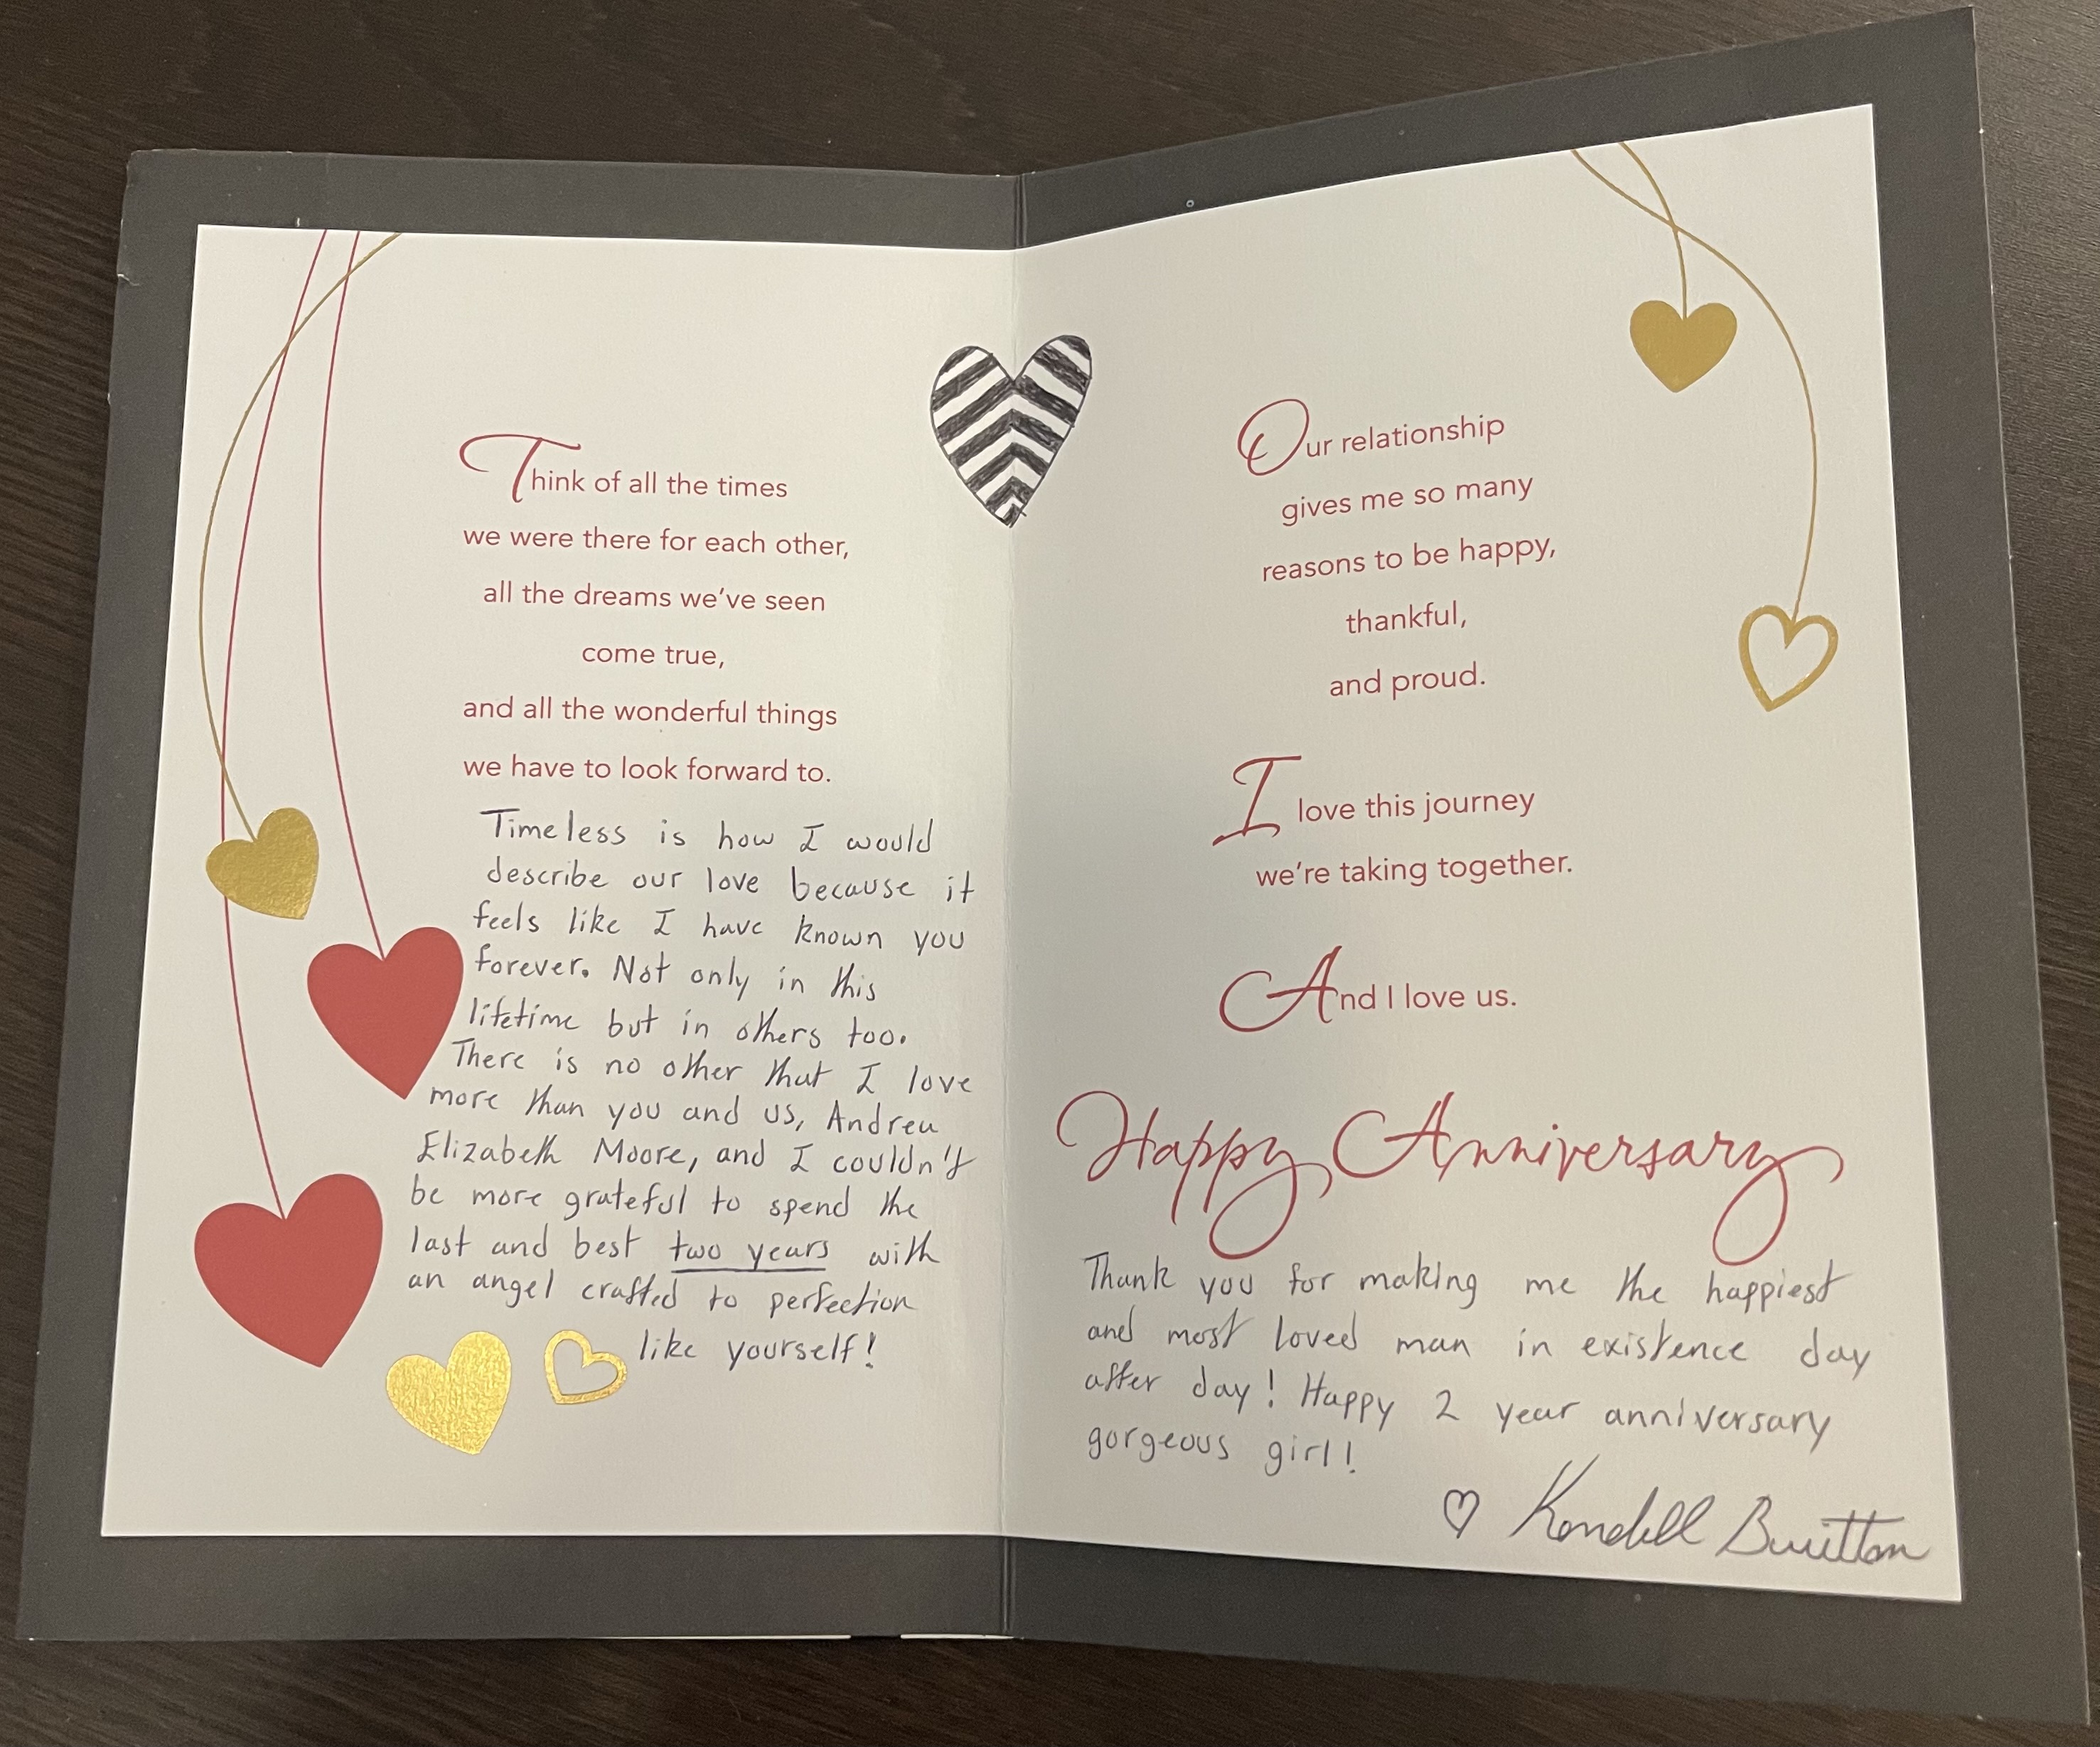 Think of all the times
we were there for each other,
all the dreams we've seen
come true,
and all the wonderful things
we have to look forward to.
Timeless is how I would
describe our love because it
feels like I have known you
forever. Not only in this
lifetime but in others too.
There is no other that I love
more than you and us, Andrea
Elizabeth Moore, and I couldn't
be more grateful to spend the
last and best two years with
an angel crafted to perfection
like yourself!
Our relationship
gives me so many
reasons to be happy,
thankful,
and proud.
I love this journey
we're taking together.
And I love us.
Happy Anniversary
Thank you for making me the happiest
and most loved man in existence day
after day! Happy 2 year anniversary
gorgeous girl!
Kendell